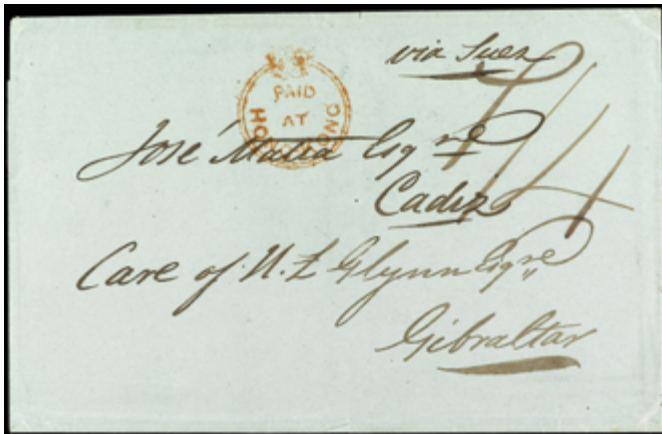 via Suez
PAID
AT
HONG KONG
José Matia Esqre
Cadiz
Care of. H. L Glynn Esqre
Gibraltar